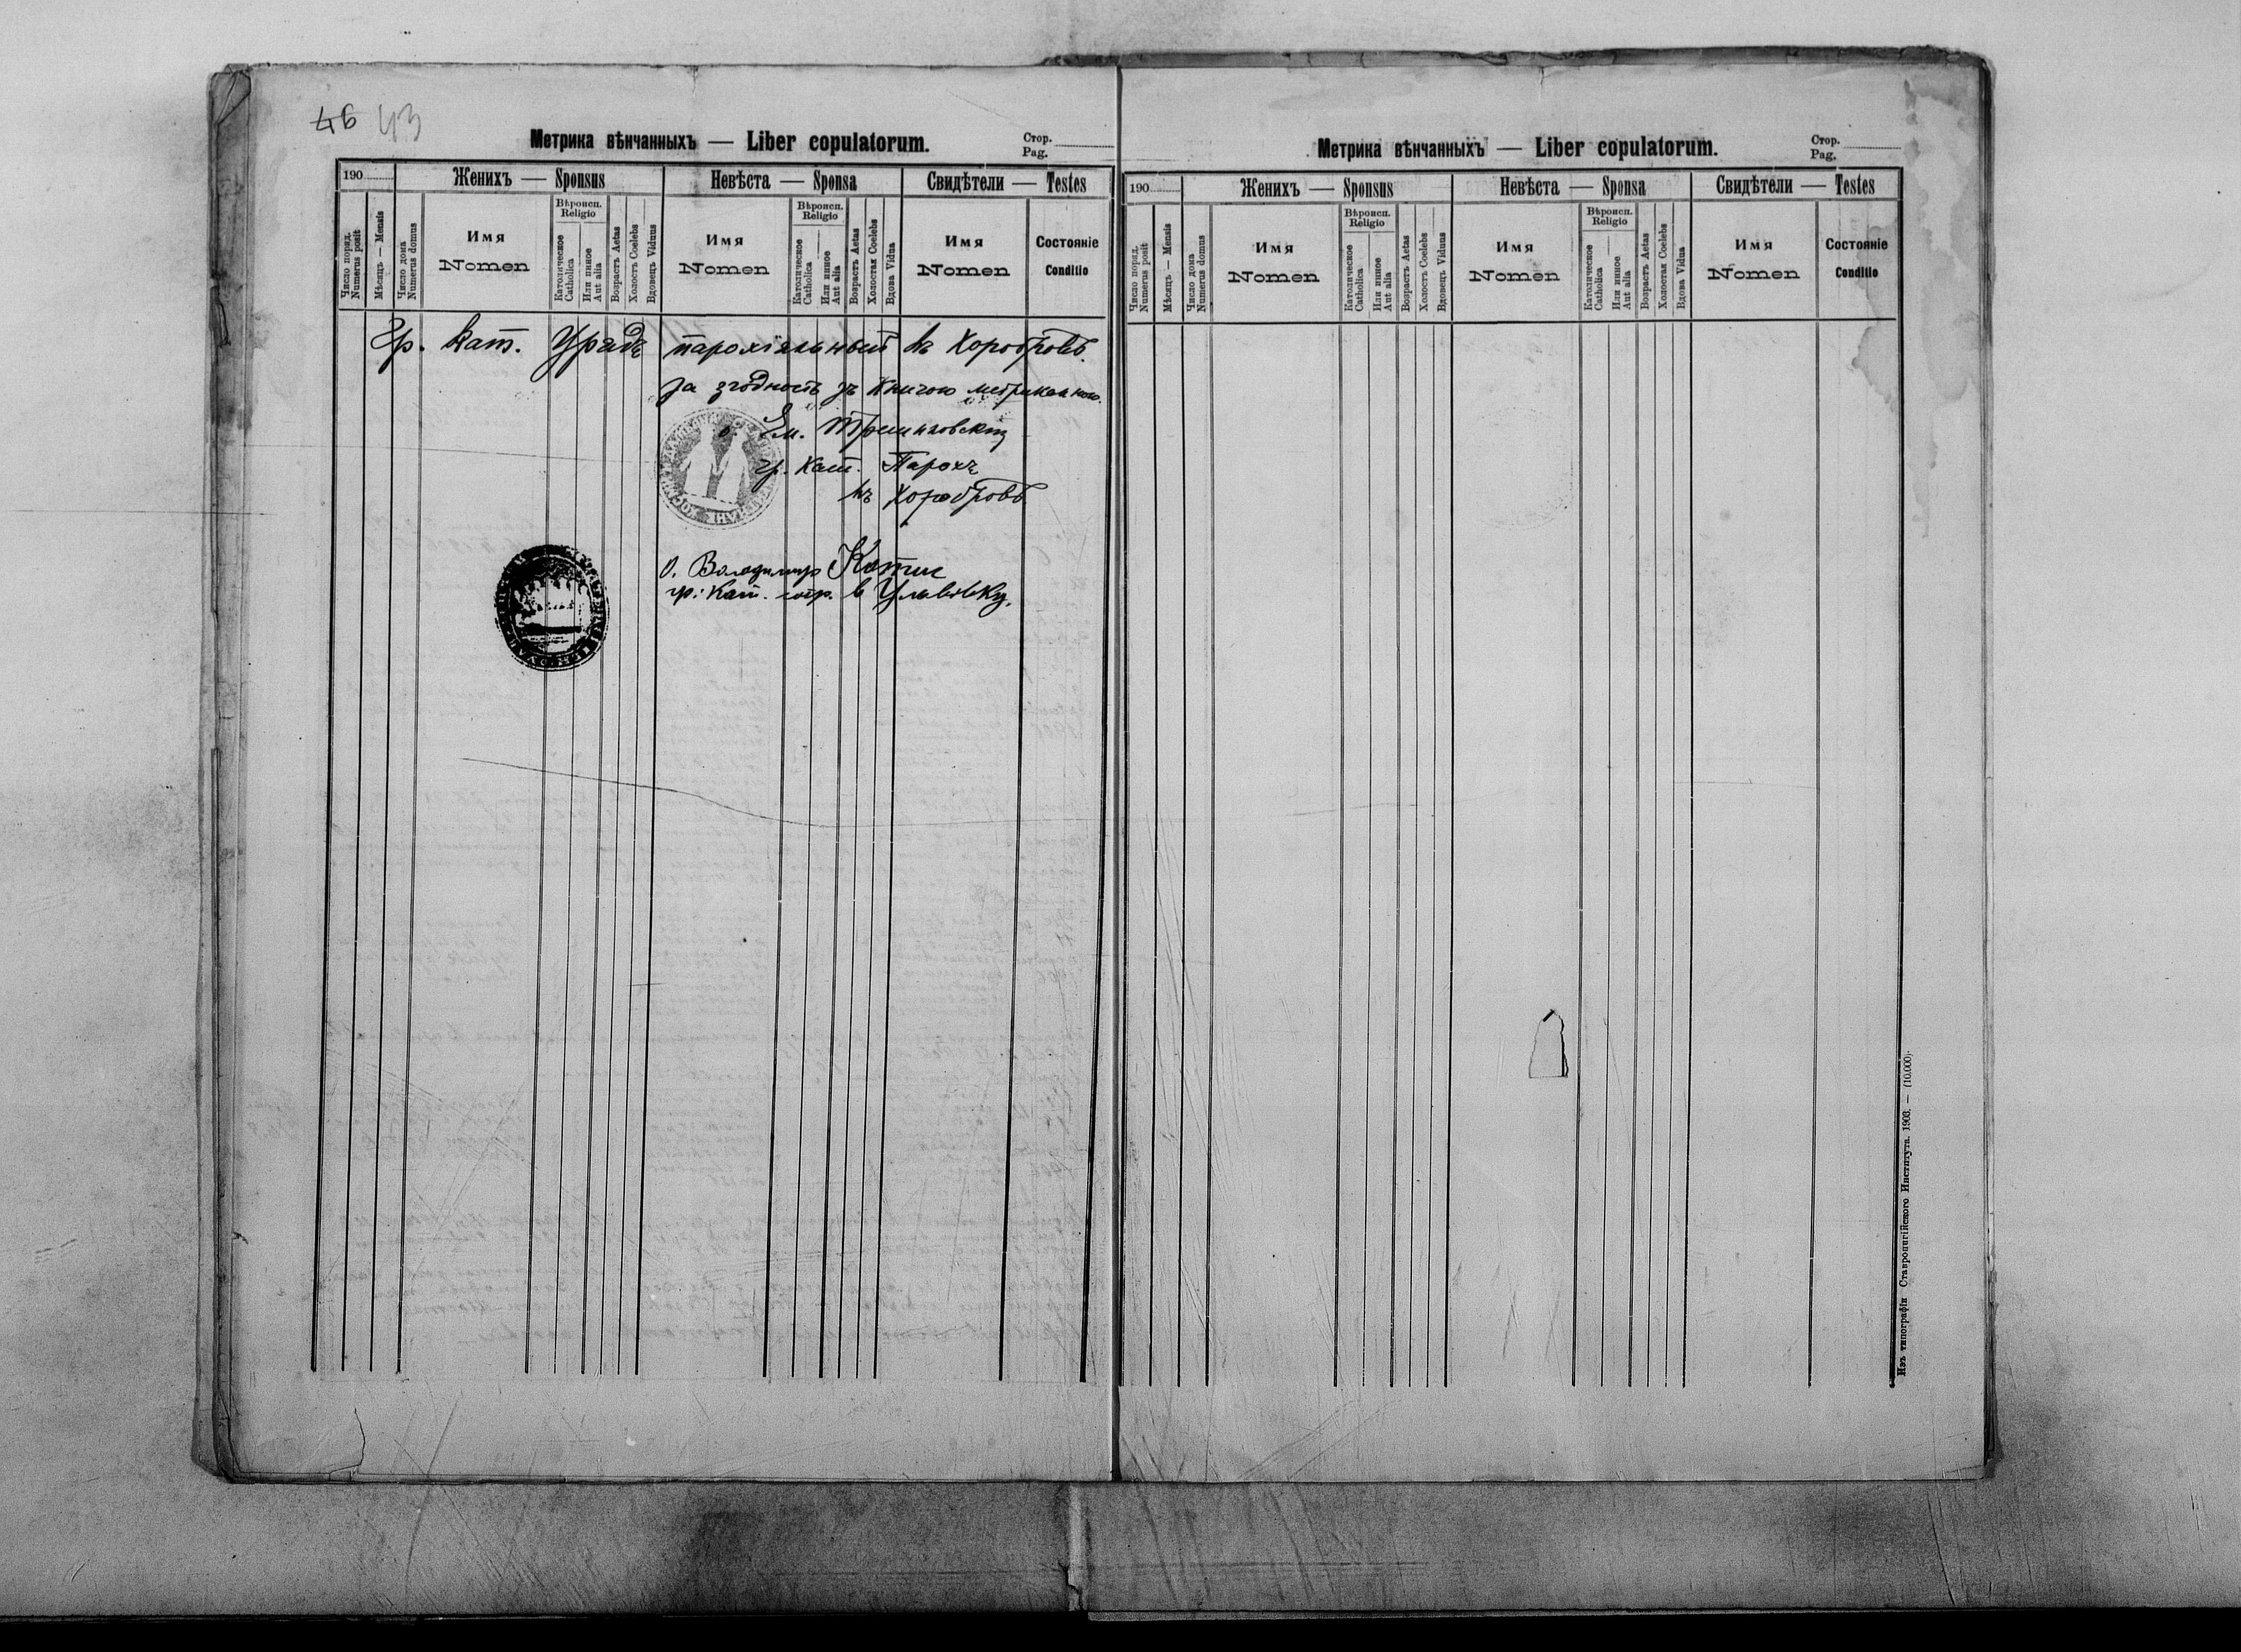 46 43
Метрика вѣнчанныхъ — Liber copulatorum.
Стор.
Pag.
190
Женихъ — Sponsus
Невѣста — Sponsa
Свидѣтели — Testes
Число поряд.
Numerus posit
Мѣсяцъ — Mensis
Число дома
Numerus domus
Имя
Nomen
Вѣроисп.
Religio
Католическое
Catholica
Или инное
Aut alia
Возрастъ Aetas
Холостъ Coelebs
Вдовецъ Viduus
Имя
Nomen
Вѣроисп.
Religio
Католическое
Catholica
Или инное
Aut alia
Возрастъ Aetas
Холостая Coelebs
Вдова Vidua
Имя
Nomen
Состояніе
Conditio
Гр. кат. Урядъ парохіяльный въ Хоробровѣ.
За згодность зъ книгою метрикальною.
о. Ем.
гр. кат. Парохъ
въ Хоробровѣ
о. Володимир
гр. кат. сотр. в Угльвівку.
Метрика вѣнчанныхъ — Liber copulatorum.
Стор.
Pag.
190
Женихъ — Sponsus
Невѣста — Sponsa
Свидѣтели — Testes
Число поряд.
Numerus posit
Мѣсяцъ — Mensis
Число дома
Numerus domus
Имя
Nomen
Вѣроисп.
Religio
Католическое
Catholica
Или инное
Aut alia
Возрастъ Aetas
Холостъ Coelebs
Вдовецъ Viduus
Имя
Nomen
Вѣроисп.
Religio
Католическое
Catholica
Или инное
Aut alia
Возрастъ Aetas
Холостая Coelebs
Вдова Vidua
Имя
Nomen
Состояніе
Conditio
Изъ типографіи Ставропигійского Института. 1903. — (10.000).